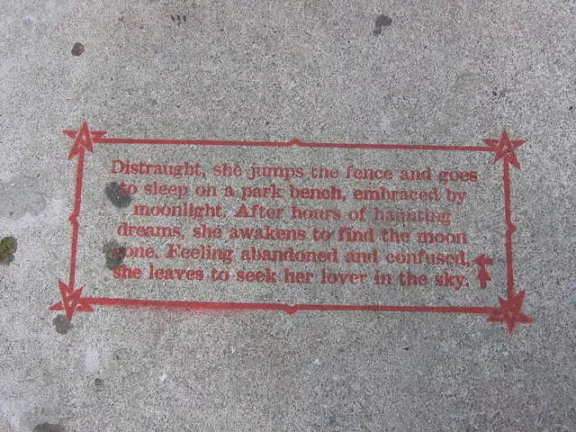 Distraught, she jumps the fence and goes
to sleep on a park bench, embraced by
moonlight. After hours of haunting
dreams, she awakens to find the moon
gone. Feeling abandoned and confused,
she leaves to seek her lover in the sky.